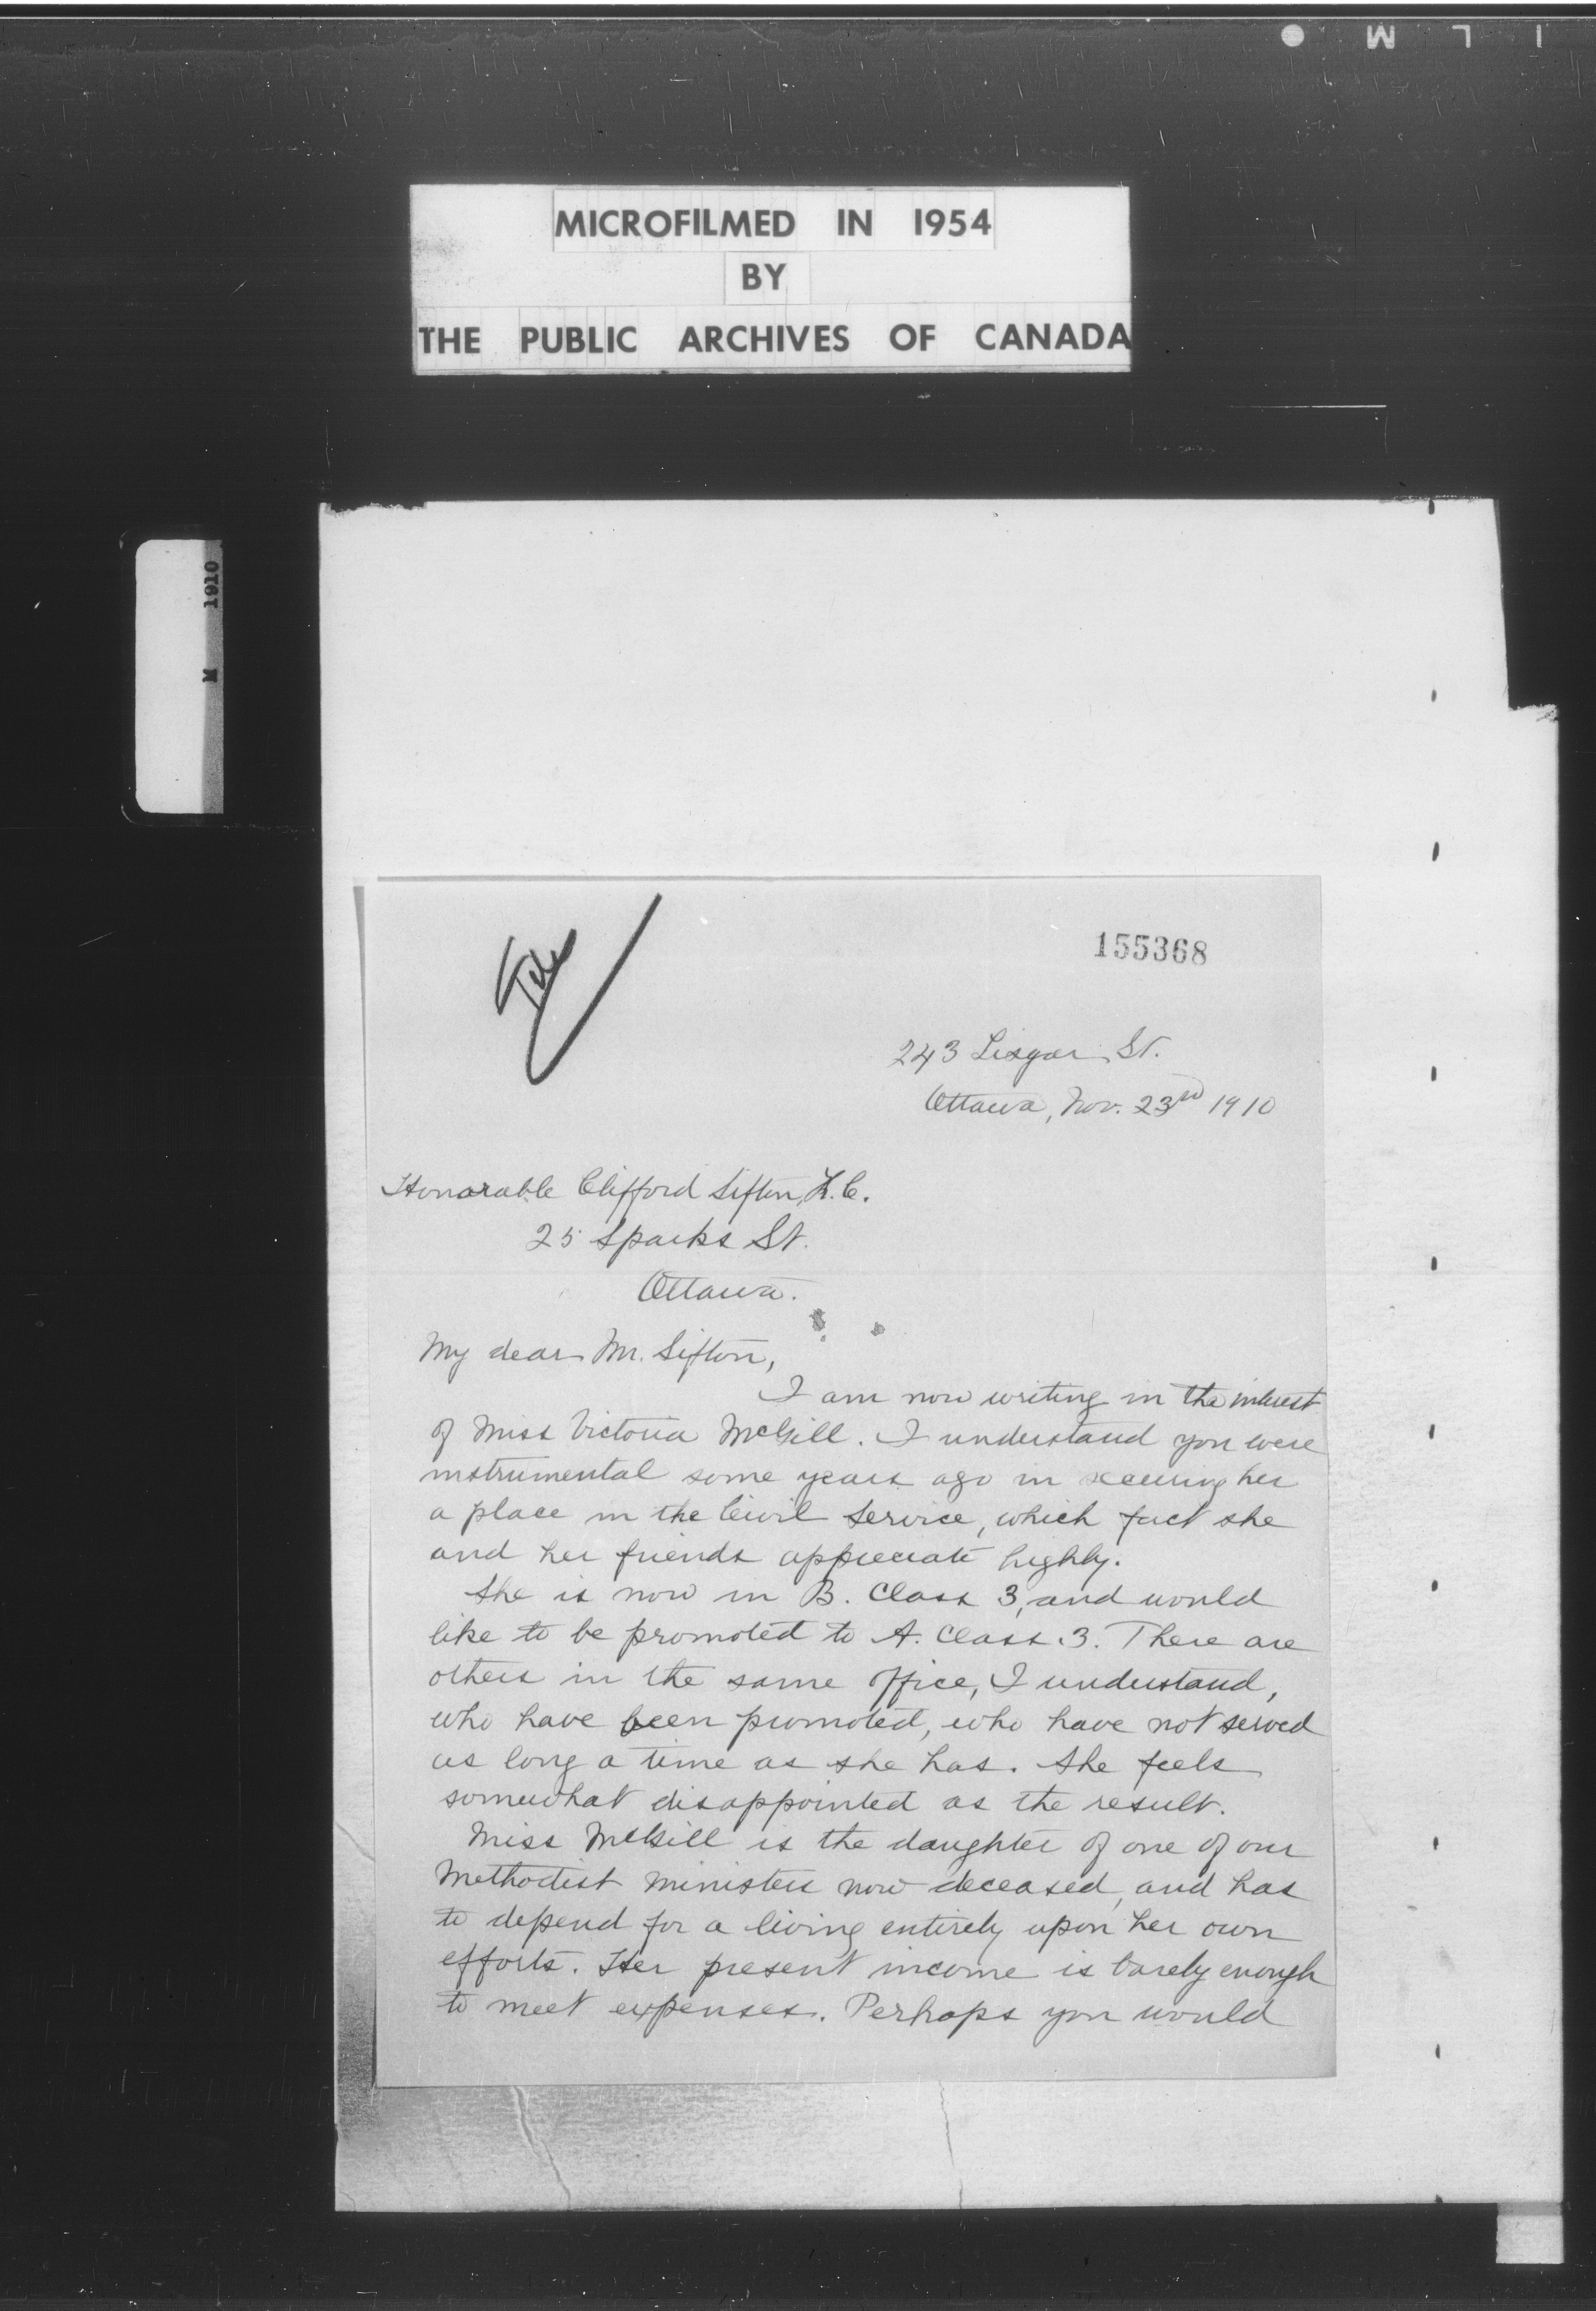 MICROFILMED IN 1954
BY
THE PUBLIC ARCHIVES OF CANADA
M 1910
155368
243 Lisgar St.
Ottawa, Nov. 23rd 1910
Honorable Clifford Sifton, K.C.
25 Sparks St.
Ottawa.
My dear Mr. Sifton,
I am now writing in the interest
of Miss Victoria McGill. I understand you were
instrumental some years ago in securing her
a place in the Civil Service, which fact she
and her friends appreciate highly.
She is now in B. Class 3, and would
like to be promoted to A. Class 3. There are
others in the same office, I understand,
who have been promoted, who have not served
as long a time as she has. She feels
somewhat disappointed as the result.
Miss McGill is the daughter of one of our
Methodist ministers now deceased, and has
to depend for a living entirely upon her own
efforts. Her present income is barely enough
to meet expenses. Perhaps you would